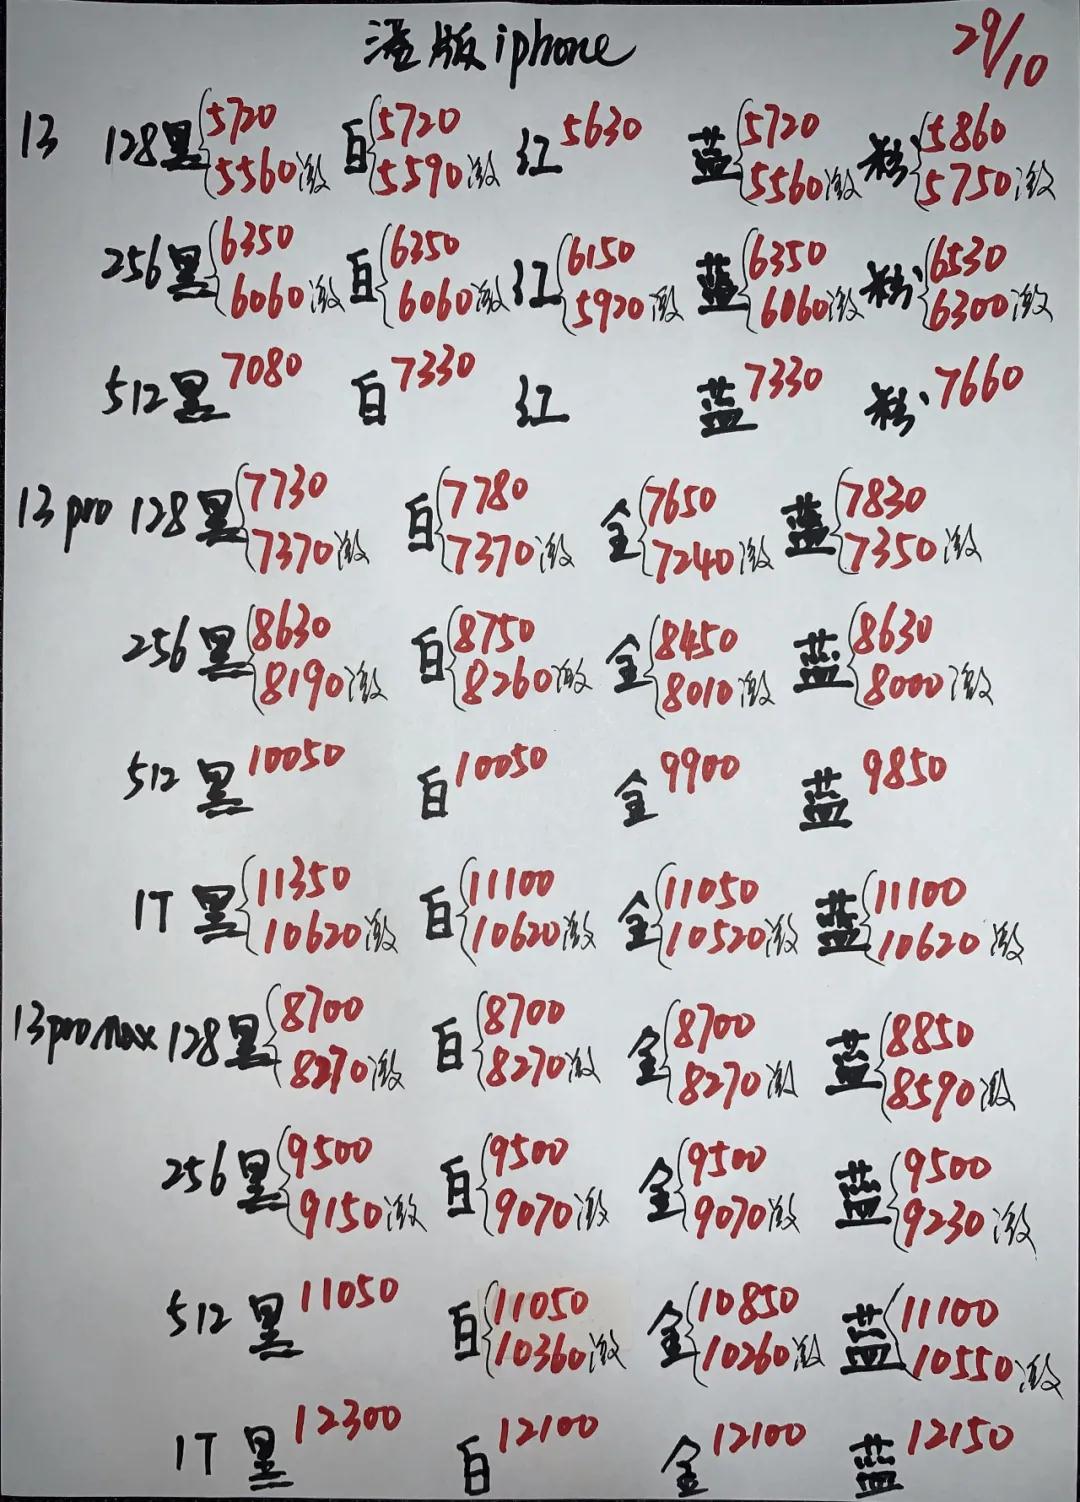 港版iphone 29/10
13 128黑 5720 白 5720 红 5630 蓝 5720 粉 5860
5560激 5590激 5560激 5750激
256黑 6350 白 6350 红 6150 蓝 6350 粉 6530
6060激 6060激 5920激 6060激 6300激
512黑 7080 白 7330 红 蓝 7330 粉 7660
13 pro 128黑 7730 白 7780 金 7650 蓝 7830
7370激 7370激 7240激 7350激
256黑 8630 白 8750 金 8450 蓝 8630
8190激 8260激 8010激 8000激
512黑 10050 白 10050 金 9900 蓝 9850
1T黑 11350 白 11100 金 11050 蓝 11100
10620激 10620激 10520激 10620激
13promax 128黑 8700 白 8700 金 8700 蓝 8850
8270激 8270激 8270激 8590激
256黑 9500 白 9500 金 9500 蓝 9500
9150激 9070激 9070激 9230激
512黑 11050 白 11050 金 10850 蓝 11100
10360激 10260激 10550激
1T黑 12300 白 12100 金 12100 蓝 12150